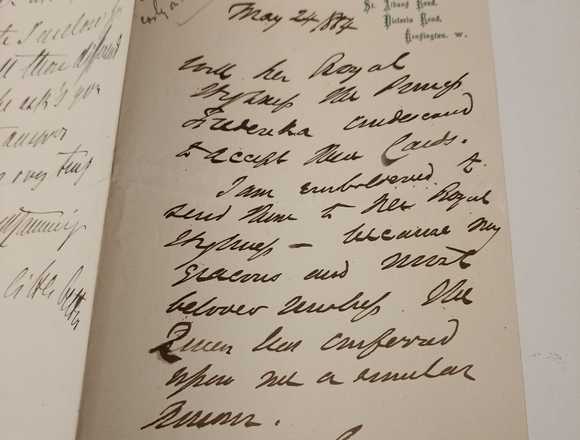 May 24 1884
St. Albans Road,
Victoria Road,
Kensington. W.
Will her Royal
Highness the Princess
Frederika condescend
to accept these Cards.
I am emboldened to
send them to Her Royal
Highness – because my
gracious and most
beloved mistress the
Queen has conferred
upon me a similar
honour.
I enclose
ask's you
answer